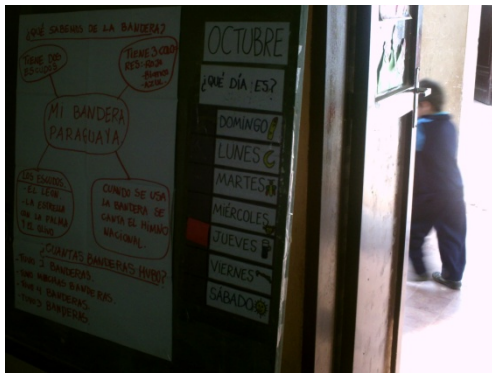 ¿QUÉ SABEMOS DE LA BANDERA?
TIENE DOS
ESCUDOS
TIENE 3 COLO-
RES: ROJO
-BLANCO
-AZUL
MI BANDERA
PARAGUAYA
LOS ESCUDOS:
- EL LEÓN
- LA ESTRELLA
CON LA PALMA
Y EL OLIVO
CUANDO SE USA
LA BANDERA SE
CANTA EL HIMNO
NACIONAL.
¿CUÁNTAS BANDERAS HUBO?
BANDERAS.
MUCHAS BANDERAS.
4 BANDERAS.
BANDERAS.
OCTUBRE
¿QUÉ DÍA ES?
DOMINGO
LUNES
MARTES
MIÉRCOLES
JUEVES
VIERNES
SÁBADO